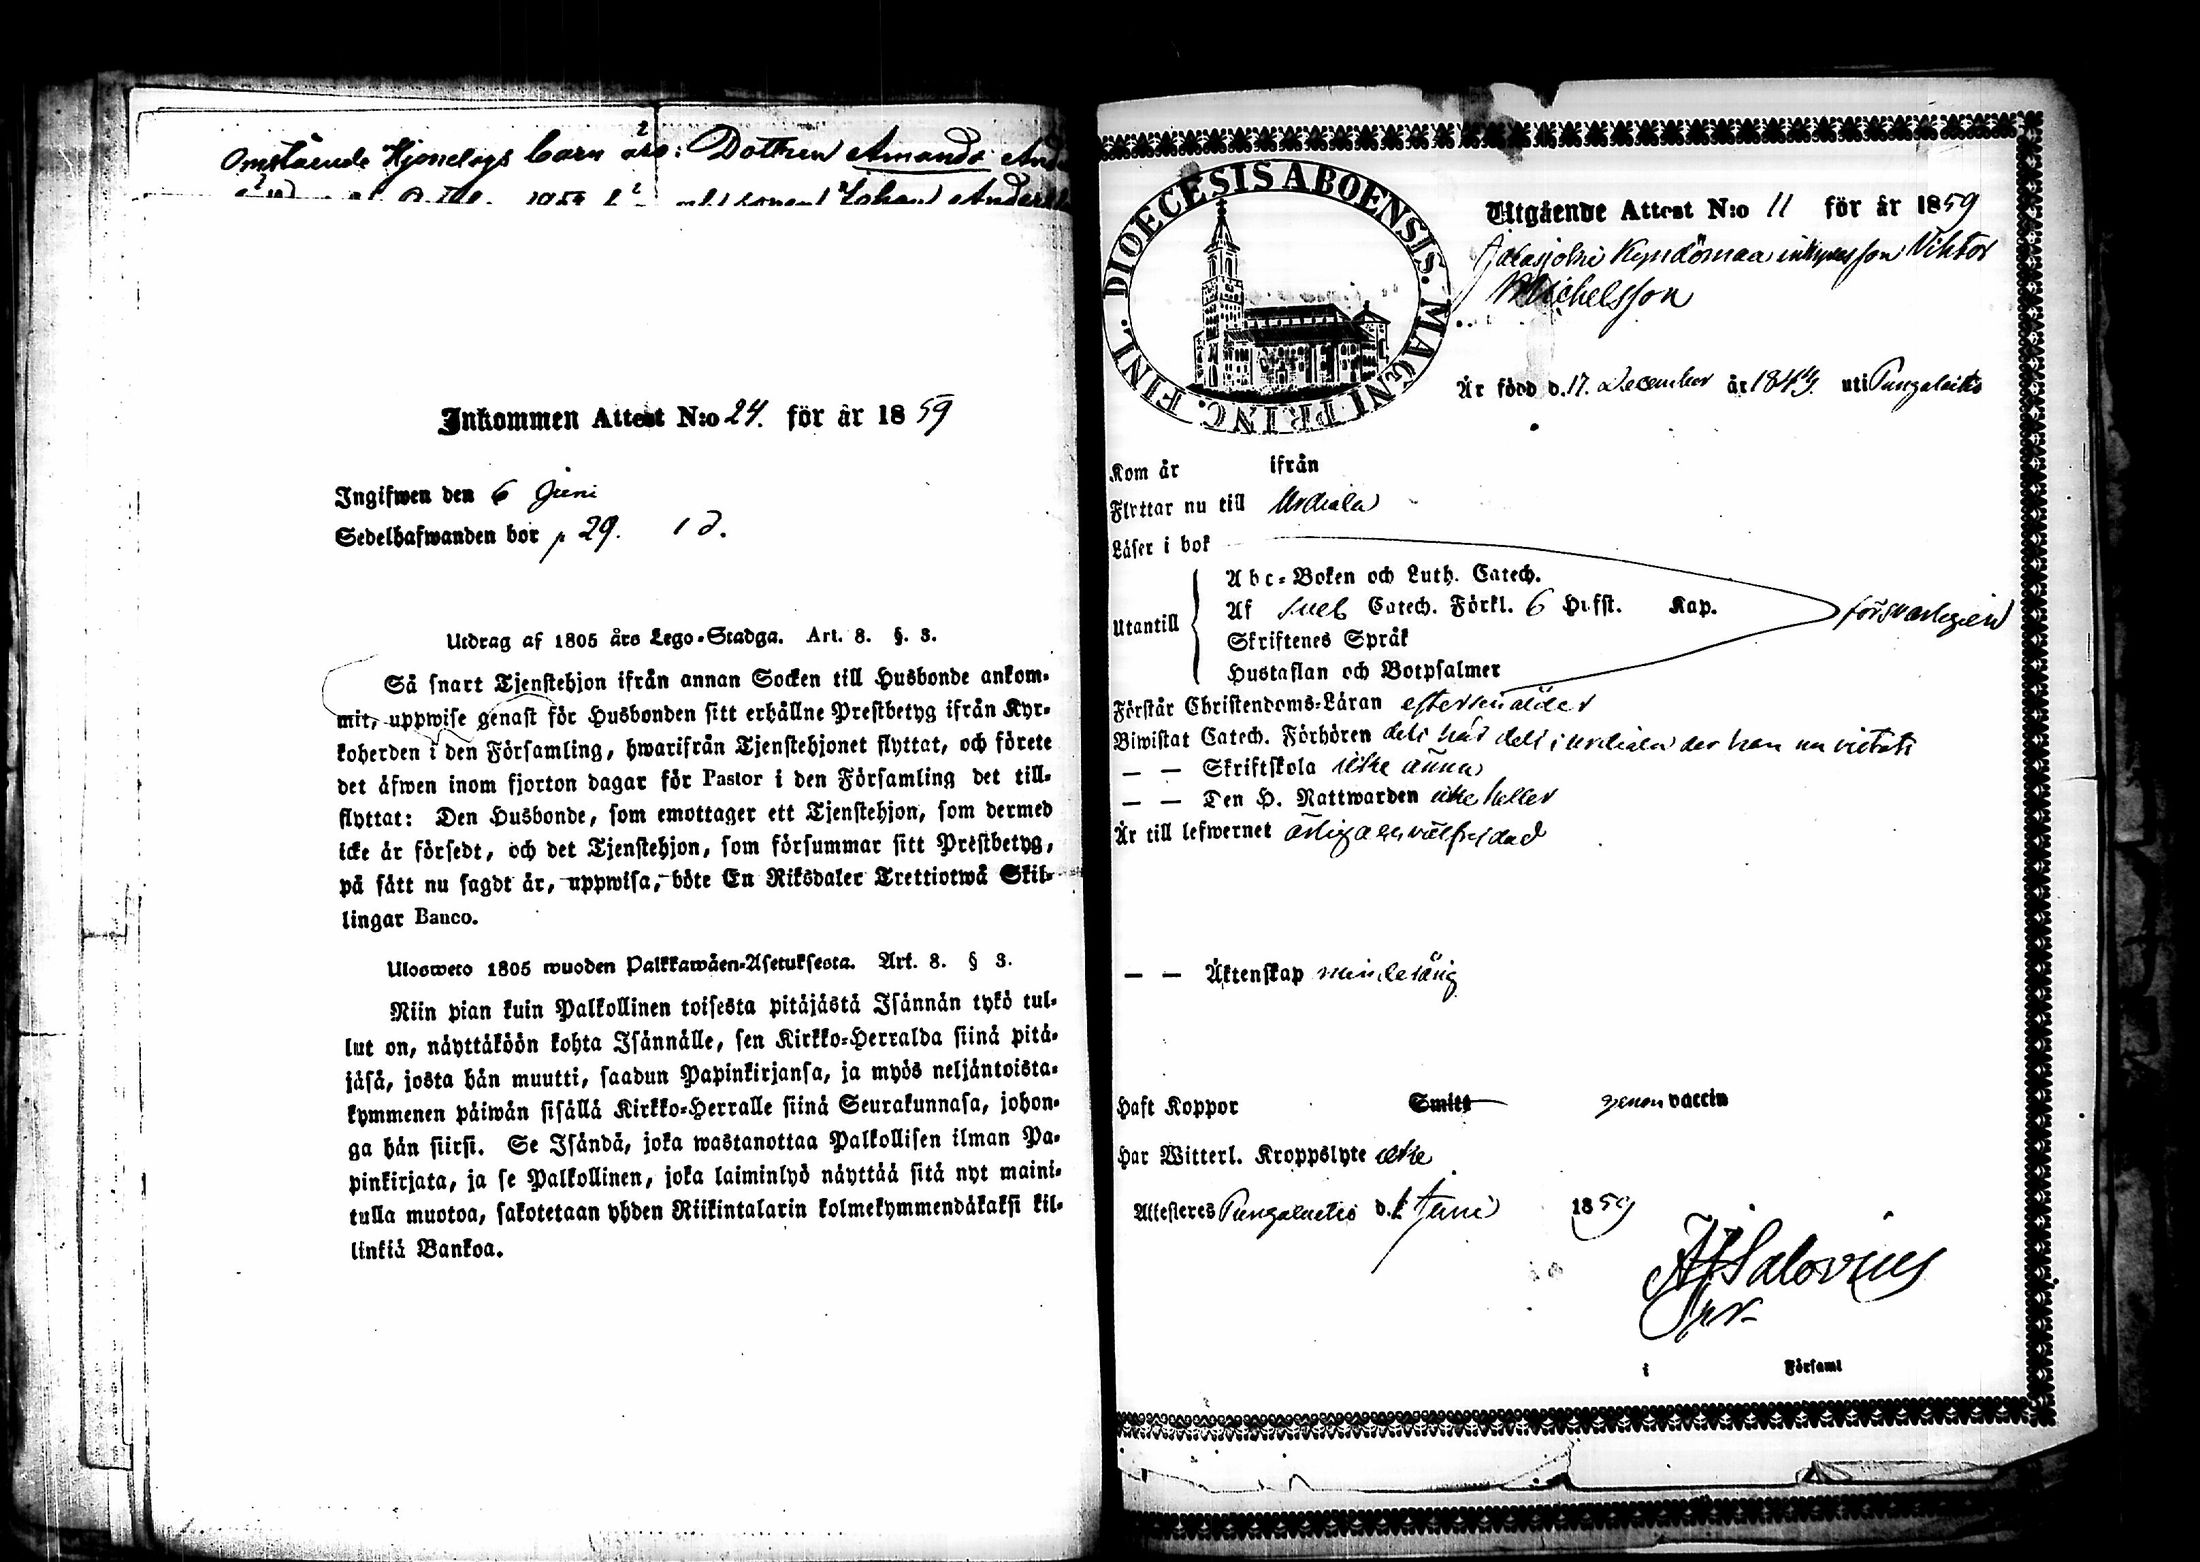 Omstående Hjonelags barn äro: Dottren Amanda
Johan
Inkommen Attest N:o 24. för år 1859
Ingifwen den 6 Juni
Sedelhafwanden bor p 29.
Utdrag af 1805 års Lego-Stadga. Art. 8. §. 3.
Så snart Tjenstehjon ifrån annan Socken till Husbonde ankom-
mit, uppwise genast för Husbonden sitt erhållne Prestbetyg ifrån Kyr-
koherden i den Församling, hwarifrån Tjenstehjonet flyttat, och förete
det äfwen inom fjorton dagar för Pastor i den Församling det till-
flyttat: Den Husbonde, som emottager ett Tjenstehjon, som dermed
icke är försedt, och det Tjenstehjon, som försummar sitt Prestbetyg,
på sätt nu sagdt är, uppwisa, böte En Riksdaler Trettiotwå Skil-
lingar Banco.
Ulosweto 1805 wuoden Palkkawäen-Asetuksesta. Art. 8. § 3.
Niin pian kuin Palkollinen toisesta pitäjästä Isännän tykö tul-
lut on, näyttäköön kohta Isännälle, sen Kirkko-Herralda siinä pitä-
jäsä, josta hän muutti, saadun Papinkirjansa, ja myös neljäntoista-
kymmenen päiwän sisällä Kirkko-Herralle siinä Seurakunnasa, johon-
ga hän siirsi. Se Isändä, joka wastanottaa Palkollisen ilman Pa-
pinkirjata, ja se Palkollinen, joka laiminlyö näyttää sitä nyt maini-
tulla muotoa, sakotetaan yhden Riikintalarin kolmekymmendäkaksi kil-
linkiä Bankoa.
DIOECESIS ABOENSIS. MAGNI PRINC. FINL.
Utgående Attest N:o 11 för år 1859
Kyndömaa son Viktor
Michelsson
Är född d. 17. December år 1843. uti Pungalaitio
Kom år ifrån
Flyttar nu till Urdiala
Läser i bok
Utantill
Abc-Boken och Luth. Catech.
Af Catech. Förkl. 6 Hufst. Kap.
Skriftenes Språk
Hustaflan och Botpsalmer
försvarligen
Förstår Christendoms-Läran efter sin ålder
Biwistat Catech. Förhören dels här dels i Urdiala der han nu vistats
— — Skriftskola icke ännu
— — Den H. Nattwarden icke heller
Är till lefwernet ärlig o. en välfrejdad
— — Äktenskap minderårig
Haft Koppor Smitt genom vaccin
Har Witterl. Kroppslyte icke
Attesteres Pungalaitio d. 1 Juni 1859
AJ Salovius
i Församl